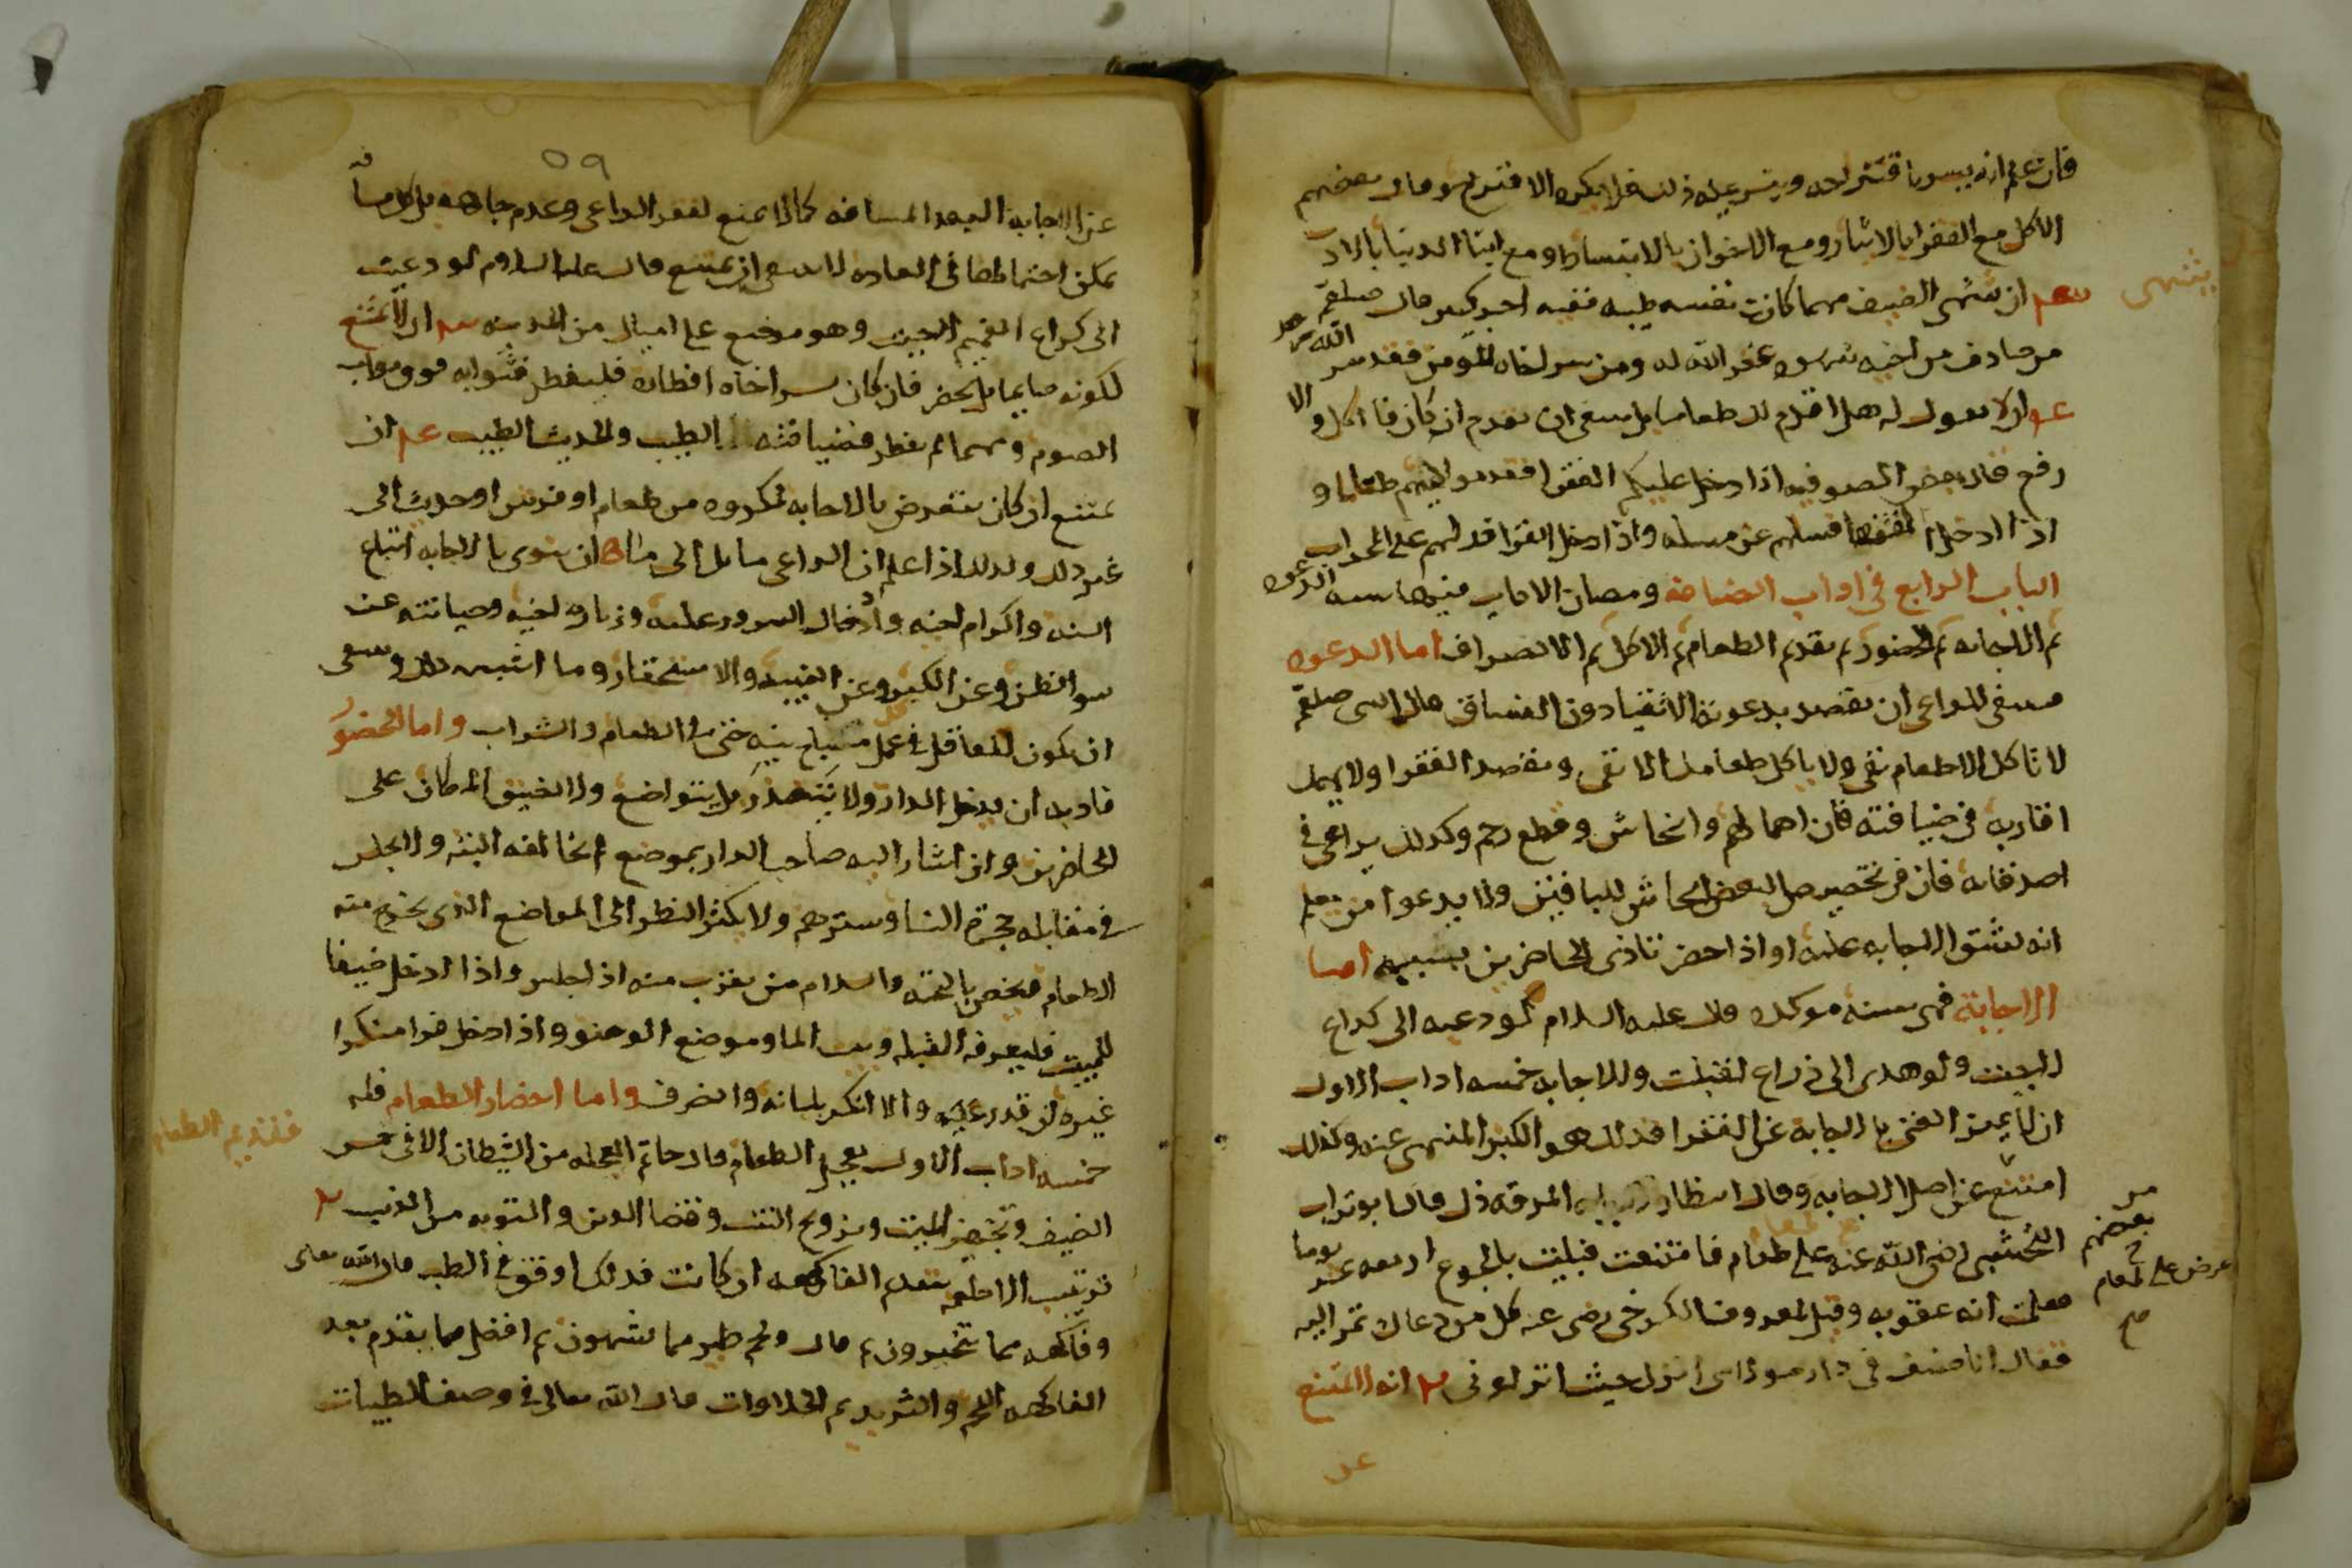 فان علم انه يسر باقتراحه ويتيسر عليه ذلك فلا يكره الاقتراح وقال بعضهم
الاكل مع الفقرا بالايثار ومع الاخوان بالانبساط ومع ابنا الدنيا بالادب
ان يشهي الضيف مهما كانت نفسه طيبه ففيه اجر كبير قال صلعم
يشهي
من صادف من اخيه شهوه غفر الله له ومن سر اخاه المومن فقد سر الله
ان لا يقول له هل اقدم لك طعاما بل ينبغي ان يقدم ان كان فان اكل والا
رفع قال بعض الصوفيه اذا دخل عليكم الفقرا فقدموا اليهم طعاما و
اذا دخل الفقها فسلهم عن مسله واذا دخل القرا فدلهم على المحراب
الباب الرابع في اداب الضيافه ومظان الاداب فيها سته الدعوه
ثم الاجابه ثم الحضور ثم تقديم الطعام ثم الاكل ثم الانصراف اما الدعوه
فينبغي للداعي ان يقصد بدعوته الاتقيا دون الفساق قال النبي صلعم
لا تاكل الا طعام تقي ولا ياكل طعامك الا تقي ويقصد الفقرا ولا يهمل
اقاربه في ضيافته فان اهمالهم وايحاش وقطع رحم وكذلك يراعي في
اصدقائه فان في تخصيص البعض ايحاش للباقين ولا يدعوا من يعلم
انه يشق الاجابه عليه او اذا حضر تاذى الحاضرين بسببه اما
الاجابة فهي سنه موكده قال عليه السلام لو دعيت الى كراع
لاجبت ولو هدى الى ذراع لقبلت وللاجابه خمسه اداب الاول
ان لا يميز الغني بالاجابة عن الفقرا فذلك هو الكبر المنهي عنه وكذلك
امتنع عن اصل الاجابه وقال انتظار المرقه ذل قال ابو تراب
النخشبي رضي الله عنه على طعام فامتنعت فبليت بالجوع اربعه عشر يوما
عرض علي طعام
صح
فعلمت انه عقوبه وقيل لمعروف الكرخي رضي عنه كل من دعاك تمر اليه
فقال انا ضيف في دار مولاى انزل حيث انزلوني انه لا يمتنع
عن
٥٩
عن الاجابة لبعد المسافه كما لا يمتنع لفقر الداعي وعدم جاهه بل كل مسافه
يمكن احتمالها في العاده لا ينبغي ان يمتنع قال عليه السلام لو دعيت
الى كراع الغميم لاجبت وهو موضع على اميال من المدينه ان لا يمتنع
لكونه صايما بل يحضر فان كان يسر اخاه افطاره فليفطر فثوابه فوق ثواب
الصوم ومهما لم يفطر فضيافته الطيب والحديث الطيب ان
يمتنع ان كان يتعرض بالاجابه لمكروه من طعام او فرش او حديث الى
غير ذلك وكذلك اذا علم ان الداعي مايل الى ان ينوى بالاجابه اتباع
السنه واكرام اخيه وادخال السرور عليه وزياره اخيه وصيانته عن
سو الظن وعن الكبر وعن الغيبه والاستحقار وما اشبه ذلك وينبغي
ان يكون للعاقل في كل عمل مباح نيه حتى في الطعام والشراب واما الحضور
فادبه ان يدخل الدار ولا يتصدر بل يتواضع ولا يضيق المكان على
الحاضرين وان اشار اليه صاحب الدار بموضع لا يخالفه البته ولا يجلس
في مقابله حجرة النسا وسترهم ولا يكثر النظر الى المواضع الذى يخرج منه
الطعام ويخص بالتحيه والسلام من يقرب منه اذا جلس واذا ادخل ضيفا
للمبيت فليعرفه القبله وبيت الما وموضع الوضو واذا دخل فرا منكرا
غيره ان قدر عليه والا انكر بلسانه وانصرف واما احضار الطعام فله
فتقديم الطعام
خمسه اداب الاول تعجيل الطعام قال حاتم العجله من الشيطان الا في خمس
الضيف وتجهيز الميت وتزويج البنت وقضا الدين والتوبه من الذنب ٢
ترتيب الاطعمه بتقديم الفاكهه ان كانت فذلك اوفق في الطب قال الله تعالى
وفاكهه مما يتخيرون ثم قال ولحم طير مما يشتهون ثم افضل ما يقدم بعد
الفاكهه اللحم والثريد ثم الحلاوات قال الله تعالى في وصف الطيبات